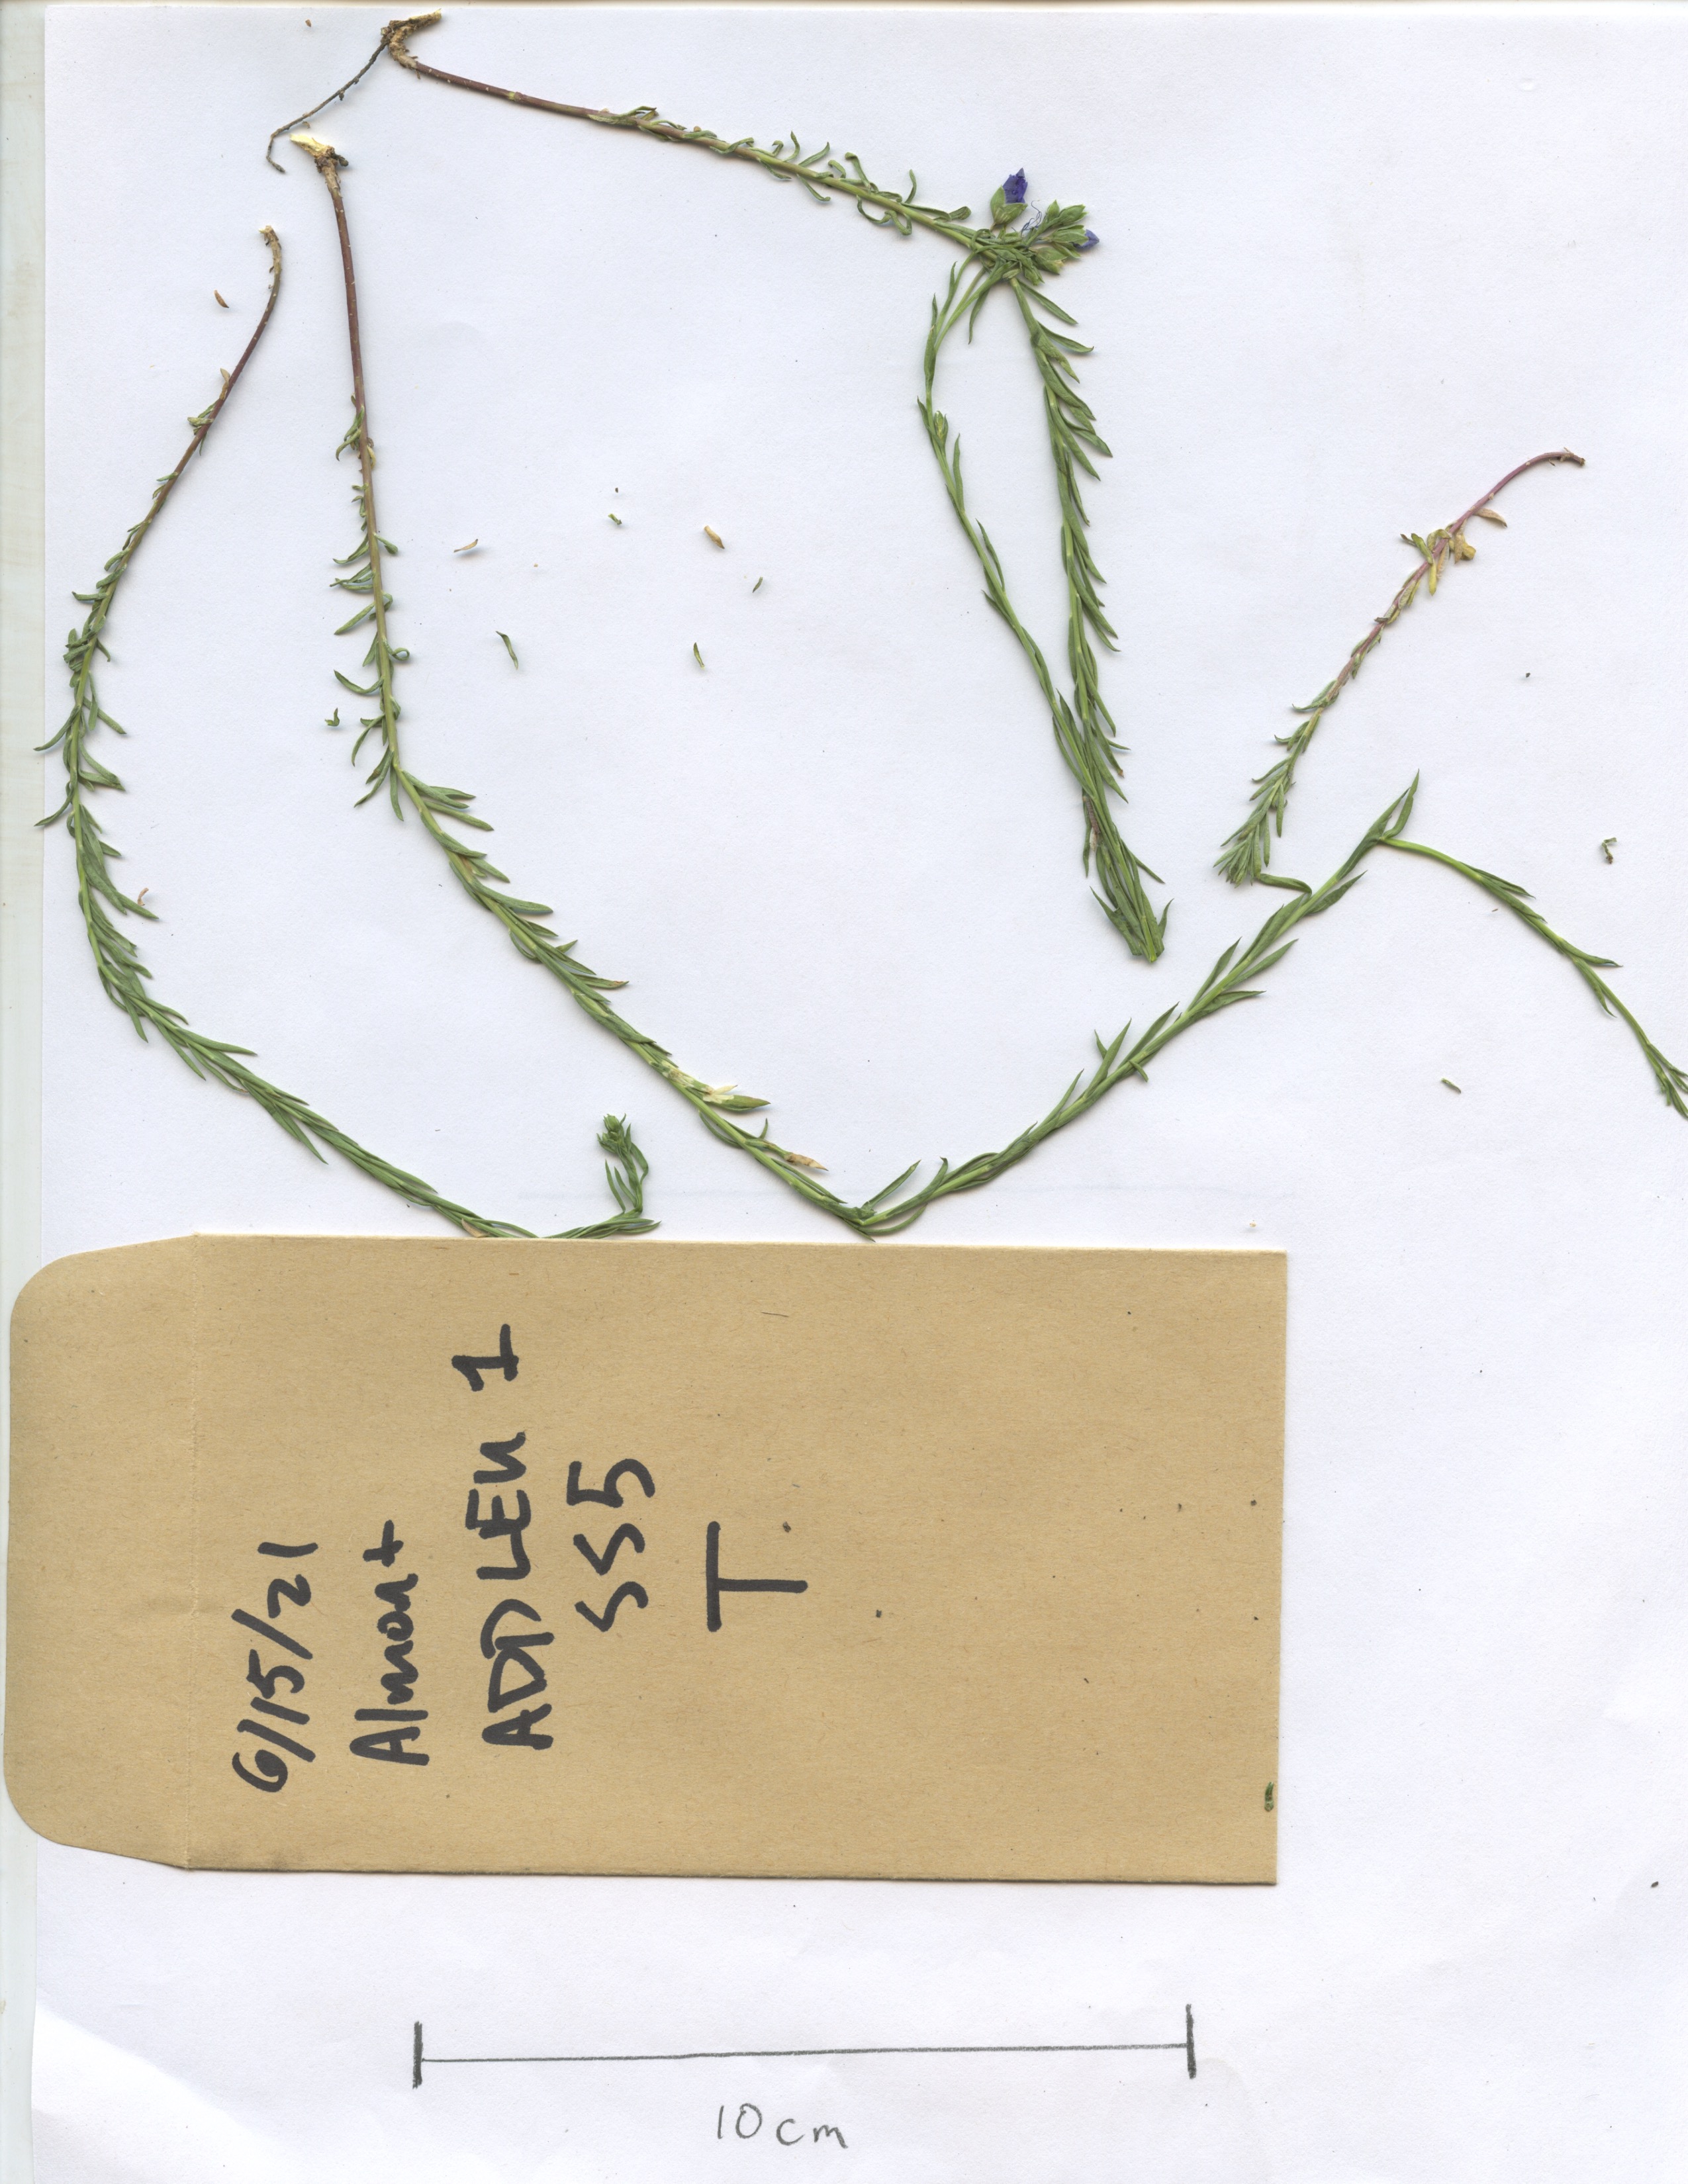 6/15/21
Almont
ADPLEW 1
SS5
T
10cm